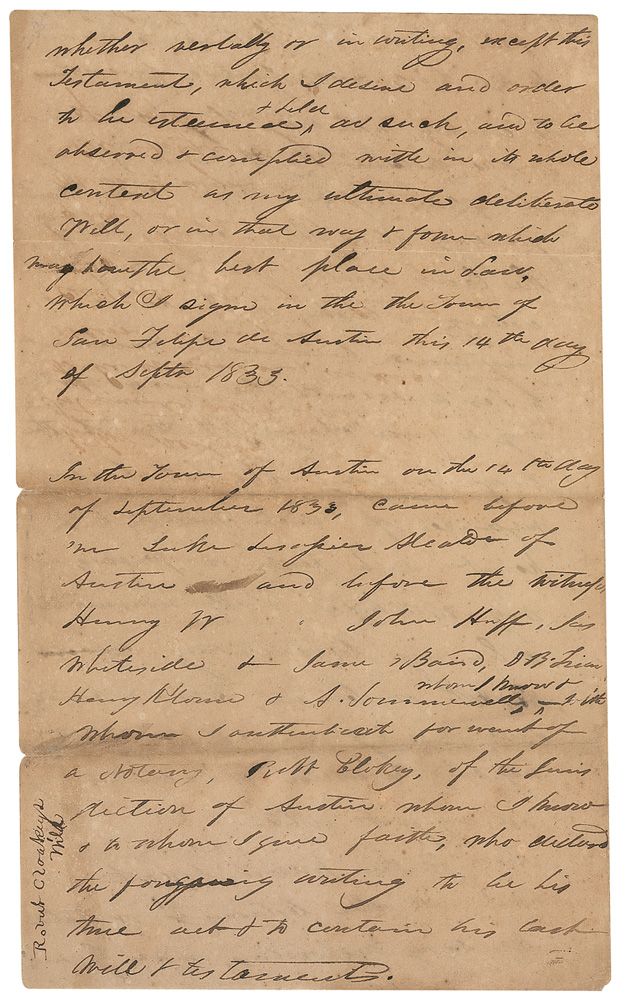 whether verbally or in writing, except this
Testament, which I desire and order
to be esteemed & held, as such, and to be
observed & complied with in its whole
content as my ultimate deliberate
Will, or in that way & form which
may have the best place in Law,
which I sign in the the Town of
San Felipe de Austin this 14th day
of Septr 1833.
In the Town of Austin on the 14th day
of September 1833, came before
me Luke Lesassier Alcalde of
Austin and before the witness
Henry W John Huff, Jas
Whiteside & James Baird,
Henry & A. Sommervell, whom I know & with
whom I authenticate for want of
a Notary, Robt Clokey, of the Juris
diction of Austin whom I know
& to whom I give faith, who declared
the foregoing writing to be his
true act & to contain his last
Will & testament.
Robert Cloakeys
Will